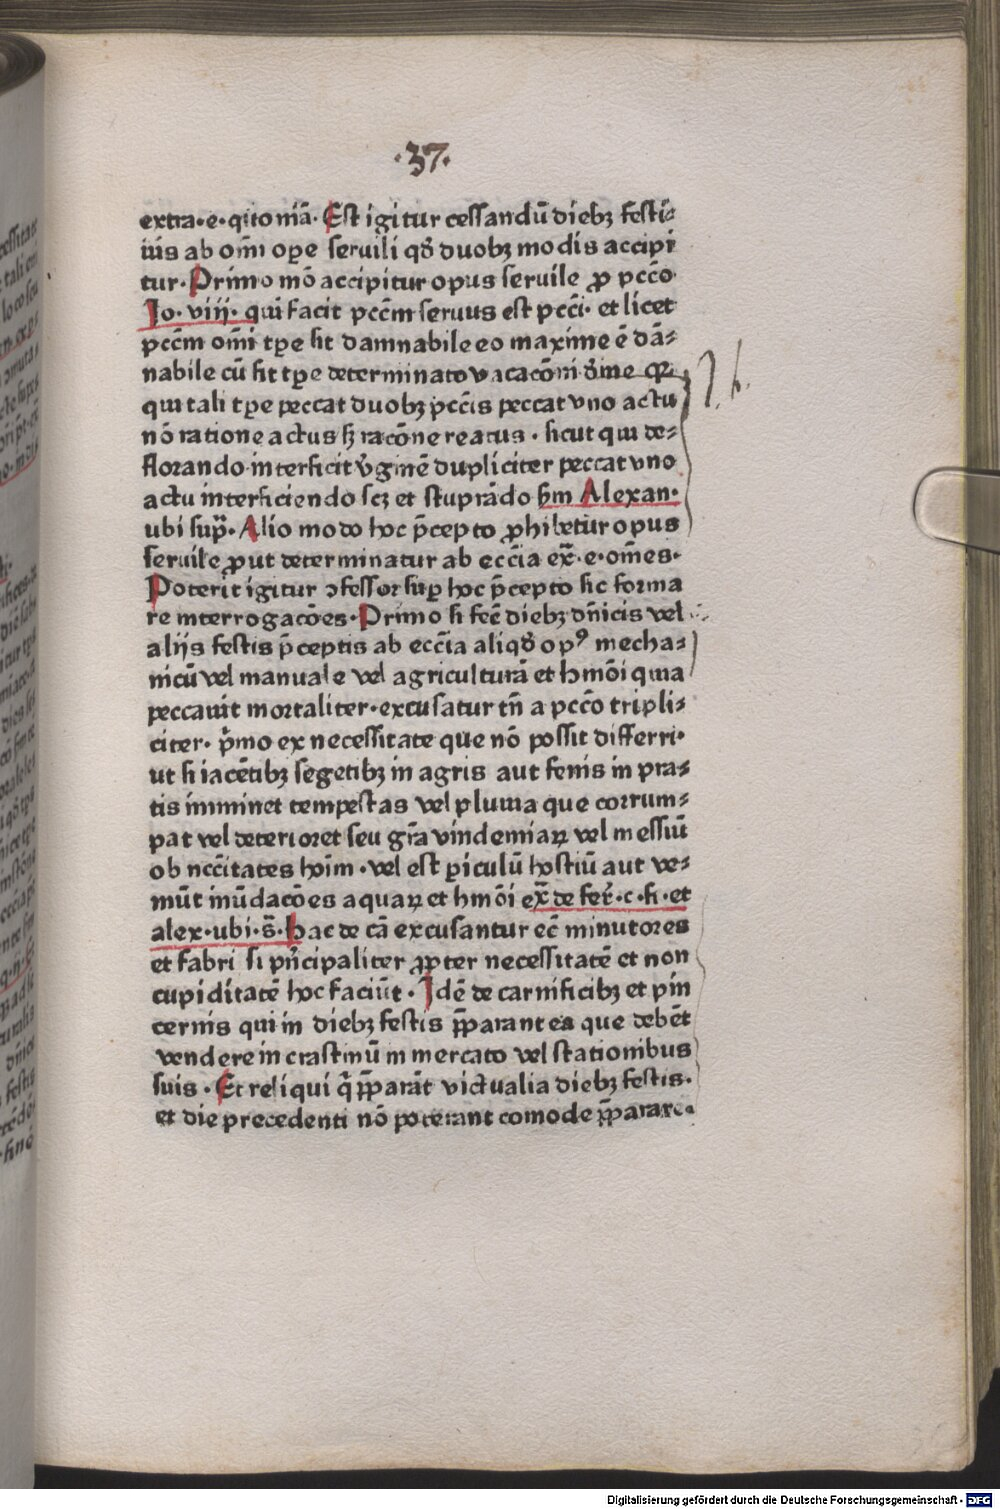 ·37·
extra·e·qito mīa· Est igitur cessandū diebꝫ festi⸗
uis ab om̄i oꝑe seruili qđ duobꝫ modis accipi
tur· Primo mō accipitur opus seruile ꝓ pccō
Jo· viij· qui facit pcc̄m seruus est pcci· et licet
pcc̄m om̄i tꝑe sit damnabile eo maxime ē dā⸗
nabile cū sit tꝑe determinato vacacōni
qui tali tꝑe peccat duobꝫ pcc̄is peccat vno actu
nō ratione actus sꝫ racōne reatus · sicut qui de⸗
florando interficit v̄ginē dupliciter peccat vno
actu interficiendo scꝫ et stuprādo s̄m Alexan·
ubi sup̄· Alio modo hoc p̄cepto ꝓhibetur opus
seruile ꝓut determinatur ab ecc̄ia ex̄·e·om̄es·
Poterit igitur ↄfessor suꝑ hoc p̄cepto sic forma
re interrogacōes· Primo si fec̄ diebꝫ dn̄icis vel
alijs festis p̄ceptis ab ecc̄ia aliqđ opꝰ mecha⸗
nicū vel manuale vel agriculturā et hmōi quia
peccauit mortaliter·excusatur tn̄ a pccō tripli⸗
citer· p̄mo ex necessitate que nō possit differri·
ut si iacētibꝫ segetibꝫ in agris aut fenis in pra⸗
tis imminet tempestas vel pluuia que corrum⸗
pat vel deterioret seu gr̄a vindemiaꝝ vel messiū
ob ncc̄itates hoīm · vel est ꝑiculū hostiū aut ve⸗
niūt inūdacōes aquaꝝ et hmōi ex̄ de fer̄·c·si·et
alex·ubi·s̄· Hac de cā excusantur ec̄ minutores
et fabri si pn̄cipaliter ꝓpter necessitatē et non
cupiditatē hoc faciūt· Jdē de carnificibꝫ et pin
cernis qui in diebꝫ festis p̄parantes que debēt
vendere in crastinū in mercato vel stationibus
suis · Et reliqui q̄ p̄parāt victualia diebꝫ festis·
et die precedenti nō poterant comode p̄parare·
Digitalisierung gefördert durch die Deutsche Forschungsgemeinschaft - DFG